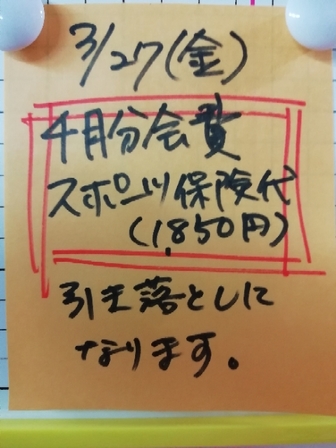 3/27(金)
4月分会費
スポーツ保険代
(1,850円)
引き落としに
なります。